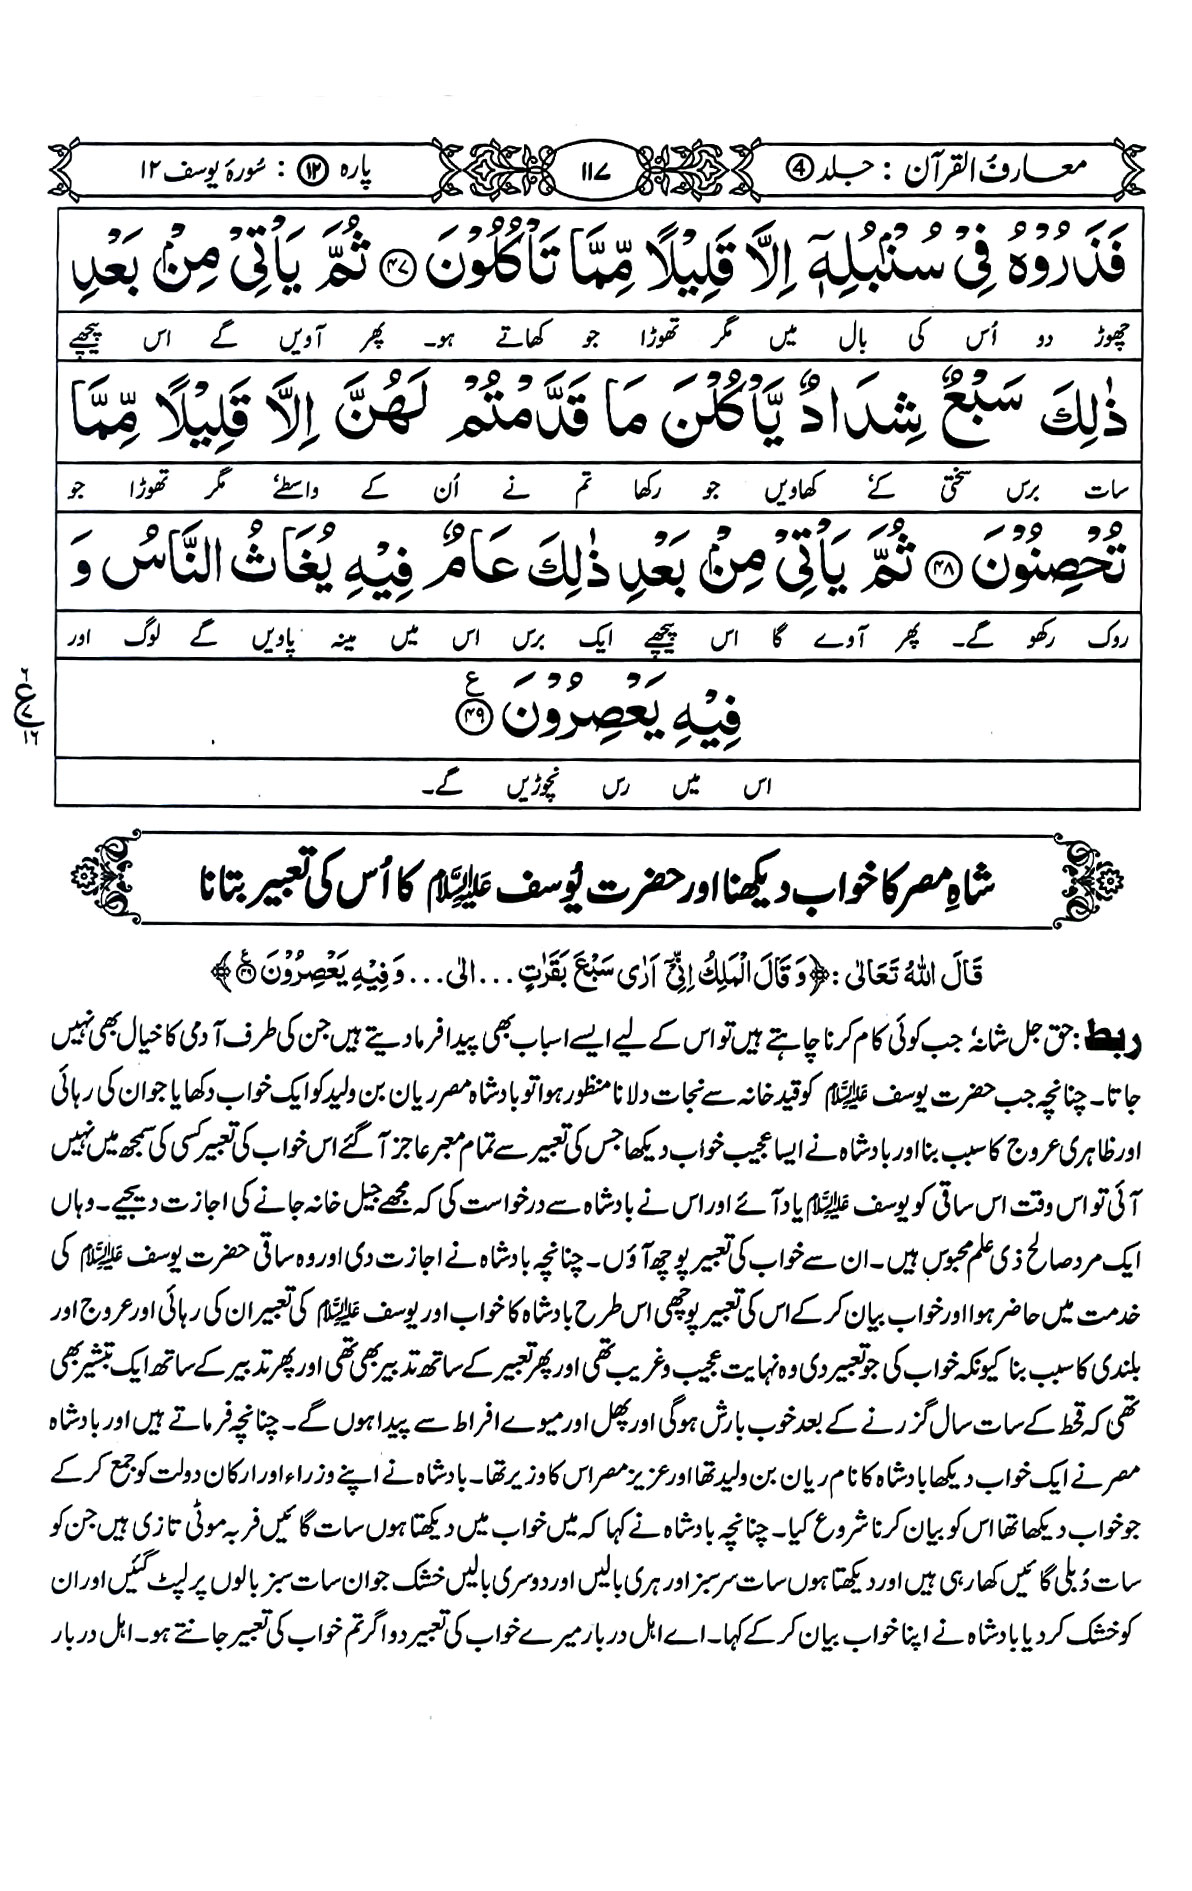 معارف القرآن : جلد ④
۱۱۷
پارہ ⑫ : سُورۃ یوسف ۱۲
فَذَرُوْهُ فِیْ سُنْۢبُلِهٖۤ اِلَّا قَلِیْلًا مِّمَّا تَاْكُلُوْنَ ﴿۴۷﴾ ثُمَّ یَاْتِیْ مِنْۢ بَعْدِ
چھوڑ دو اُس کی بال میں مگر تھوڑا جو کھاتے ہو۔ پھر آویں گے اس پیچھے
ذٰلِكَ سَبْعٌ شِدَادٌ یَّاْكُلْنَ مَا قَدَّمْتُمْ لَهُنَّ اِلَّا قَلِیْلًا مِّمَّا
سات برس سختی کے کھاویں جو رکھا تم نے اُن کے واسطے مگر تھوڑا جو
تُحْصِنُوْنَ ﴿۴۸﴾ ثُمَّ یَاْتِیْ مِنْۢ بَعْدِ ذٰلِكَ عَامٌ فِیْهِ یُغَاثُ النَّاسُ وَ
روک رکھو گے۔ پھر آوے گا اس پیچھے ایک برس اس میں مینہ پاویں گے لوگ اور
فِیْهِ یَعْصِرُوْنَ ﴿۴۹﴾ ع
۶ ع ۷ ۱۶
اس میں رس نچوڑیں گے۔
شاہِ مصر کا خواب دیکھنا اور حضرت یُوسف علیہ السلام کا اُس کی تعبیر بتانا
قَالَ اللهُ تَعَالٰی : ﴿وَقَالَ الْمَلِكُ اِنِّیْۤ اَرٰی سَبْعَ بَقَرٰتٍ ... الٰی ... وَفِیْهِ یَعْصِرُوْنَ ﴿۴۹﴾ ع﴾
ربط : حق جل شانہٗ جب کوئی کام کرنا چاہتے ہیں تو اس کے لیے ایسے اسباب بھی پیدا فرما دیتے ہیں جن کی طرف آدمی کا خیال بھی نہیں
جاتا۔ چنانچہ جب حضرت یوسف علیہ السلام کو قید خانہ سے نجات دلانا منظور ہوا تو بادشاہ مصر ریان بن ولید کو ایک خواب دکھایا جو ان کی رہائی
اور ظاہری عروج کا سبب بنا اور بادشاہ نے ایسا عجیب خواب دیکھا جس کی تعبیر سے تمام معبر عاجز آ گئے اس خواب کی تعبیر کسی کی سمجھ میں نہیں
آئی تو اس وقت اس ساقی کو یوسف علیہ السلام یاد آئے اور اس نے بادشاہ سے درخواست کی کہ مجھے جیل خانہ جانے کی اجازت دیجیے۔ وہاں
ایک مرد صالح ذی علم محبوس ہیں۔ ان سے خواب کی تعبیر پوچھ آؤں۔ چنانچہ بادشاہ نے اجازت دی اور وہ ساقی حضرت یوسف علیہ السلام کی
خدمت میں حاضر ہوا اور خواب بیان کر کے اس کی تعبیر پوچھی اس طرح بادشاہ کا خواب اور یوسف علیہ السلام کی تعبیر ان کی رہائی اور عروج اور
بلندی کا سبب بنا کیونکہ خواب کی جو تعبیر دی وہ نہایت عجیب و غریب تھی اور پھر تعبیر کے ساتھ تدبیر بھی تھی اور پھر تدبیر کے ساتھ ایک تبشیر بھی
تھی کہ قحط کے سات سال گزرنے کے بعد خوب بارش ہوگی اور پھل اور میوے افراط سے پیدا ہوں گے۔ چنانچہ فرماتے ہیں اور بادشاہ
مصر نے ایک خواب دیکھا بادشاہ کا نام ریان بن ولید تھا اور عزیز مصر اس کا وزیر تھا۔ بادشاہ نے اپنے وزراء اور ارکان دولت کو جمع کر کے
جو خواب دیکھا تھا اس کو بیان کرنا شروع کیا۔ چنانچہ بادشاہ نے کہا کہ میں خواب میں دیکھتا ہوں سات گائیں فربہ موٹی تازی ہیں جن کو
سات دُبلی گائیں کھا رہی ہیں اور دیکھتا ہوں سات سرسبز اور ہری بالیں اور دوسری بالیں خشک جو ان سات سبز بالوں پر لپٹ گئیں اور ان
کو خشک کر دیا بادشاہ نے اپنا خواب بیان کر کے کہا۔ اے اہل دربار میرے خواب کی تعبیر دو اگر تم خواب کی تعبیر جانتے ہو۔ اہل دربار